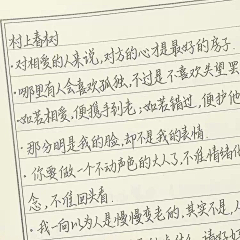 村上春树
·对相爱的人来说,对方的心才是最好的房子.
·哪里有人会喜欢孤独,不过是不喜欢失望罢
·如若相爱,便携手到老;如若错过,便护他
·那分明是我的脸,却不是我的表情.
·你要做一个不动声色的大人了,不准情绪化
念,不准回头看.
·我一向以为人是慢慢变老的,其实不是,人